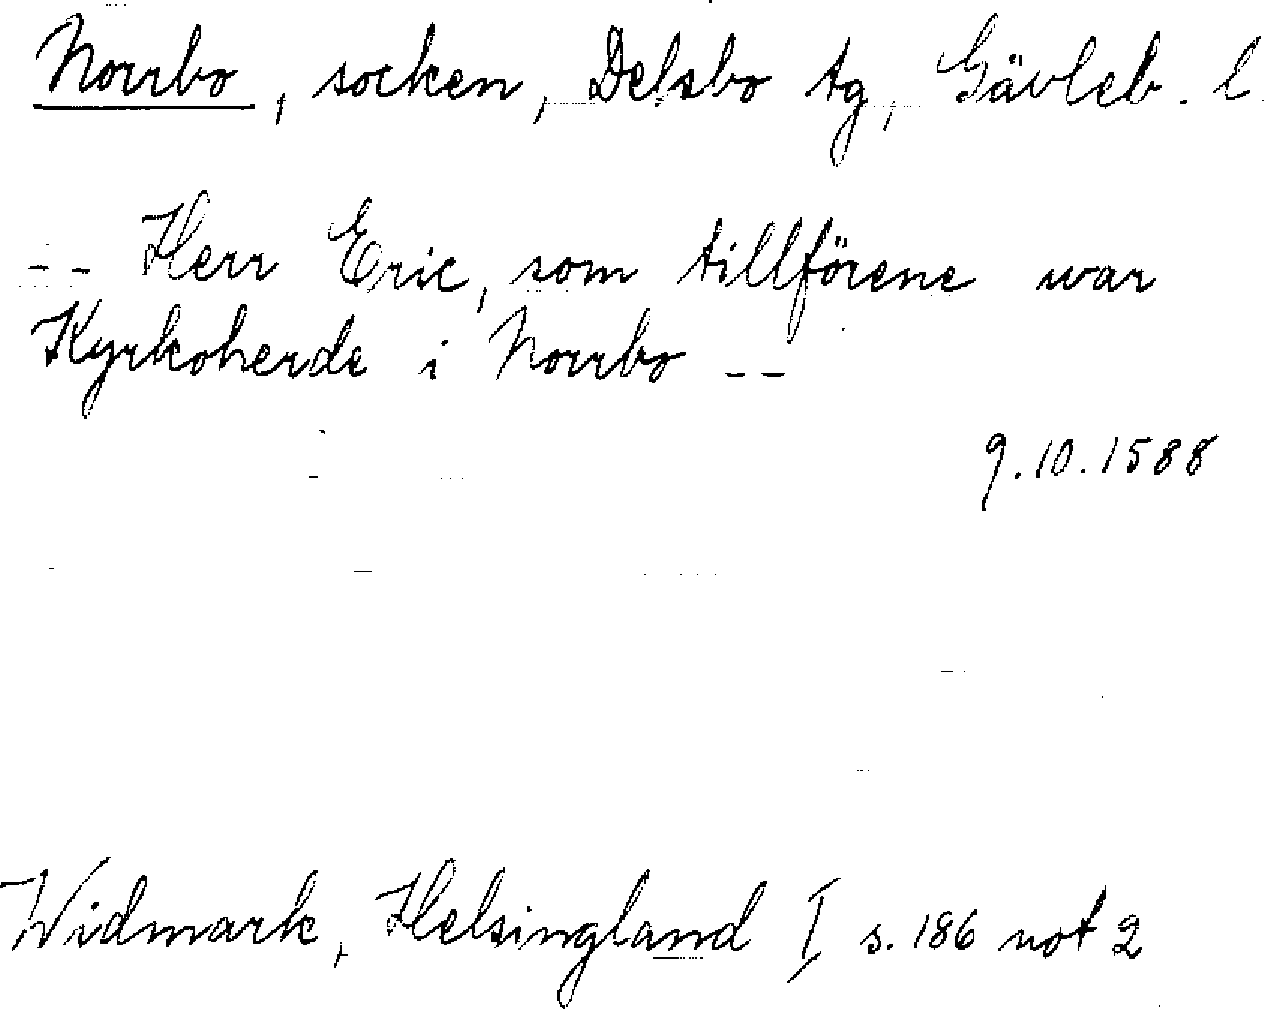 Norrbo, socken, Delsbo tg, Gävleb. l.
-- Herr Eric, som tillförene war
Kyrkoherde i Norrbo --
9.10.1588
Widmark, Helsingland I s. 186 not 2